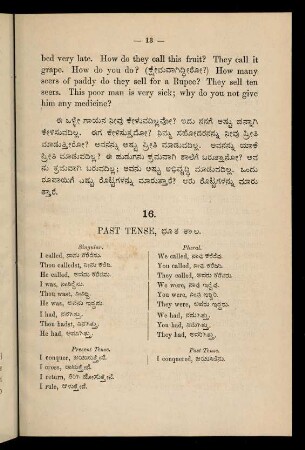 — 13 —
bed very late. How do they call this fruit? They call it
grape. How do you do? (ಕ್ಷೇಮವಾಗಿದ್ದೀರೋ?) How many
seers of paddy do they sell for a Rupee? They sell ten
seers. This poor man is very sick; why do you not give
him any medicine?
ಈ ಒಳ್ಳೇ ಗಾಯನ ನೀವು ಕೇಳುವದಿಲ್ಲವೋ? ಇದು ನನಗೆ ಅಷ್ಟು ಚನ್ನಾಗಿ
ಕೇಳಿಸುವದಿಲ್ಲ. ಈಗ ಕೇಳಿಸುತ್ತದೋ? ನಿಮ್ಮ ಸಹೋದರನನ್ನು ನೀವು ಪ್ರೀತಿ
ಮಾಡುತ್ತೀರೋ? ಅವನನ್ನು ಅಷ್ಟು ಪ್ರೀತಿ ಮಾಡುವದಿಲ್ಲ. ಅವನನ್ನು ಯಾಕೆ
ಪ್ರೀತಿ ಮಾಡುವದಿಲ್ಲ? ಈ ಹುಡುಗನು ಕ್ರಮವಾಗಿ ಶಾಲೆಗೆ ಬರುತ್ತಾನೋ? ಅವ
ನು ಕ್ರಮವಾಗಿ ಬರುವದಿಲ್ಲ; ಅವನು ಅಷ್ಟು ಅಭಿವೃದ್ಧಿ ಮಾಡುವದಿಲ್ಲ. ಒಂದು
ರೂಪಾಯಿಗೆ ಎಷ್ಟು ರೊಟ್ಟಿಗಳನ್ನು ಮಾರುತ್ತಾರೆ? ಆರು ರೊಟ್ಟಿಗಳನ್ನು ಮಾರು
ತ್ತಾರೆ.
16.
PAST TENSE, ಭೂತ ಕಾಲ.
Singular.
I called, ನಾನು ಕರೆದೆನು.
Thou calledst, ನೀನು ಕರೆದಿ.
He called, ಅವನು ಕರೆದನು.
I was, ನಾನಿದ್ದೆನು.
Thou wast, ನೀನಿದ್ದಿ.
He was, ಅವನು ಇದ್ದನು.
I had, ನನಗಿತ್ತು.
Thou hadst, ನಿನಗಿತ್ತು.
He had, ಅವನಿಗಿತ್ತು.
Plural.
We called, ನಾವು ಕರೆದೆವು.
You called, ನೀವು ಕರೆದಿರಿ.
They called, ಅವರು ಕರೆದರು.
We were, ನಾವು ಇದ್ದೆವು.
You were, ನೀವು ಇದ್ದಿರಿ.
They were, ಅವರು ಇದ್ದರು.
We had, ನಮಗಿತ್ತು.
You had, ನಿಮಗಿತ್ತು.
They had, ಅವರಿಗಿತ್ತು.
Present Tense.
I conquer, ಜಯಿಸುತ್ತೇನೆ.
I cross, ದಾಟುತ್ತೇನೆ.
I return, ತಿರಿಗಿ ಹೋಗುತ್ತೇನೆ.
I rule, ಆಳುತ್ತೇನೆ.
Past Tense.
I conquered, ಜಯಿಸಿದೆನು.